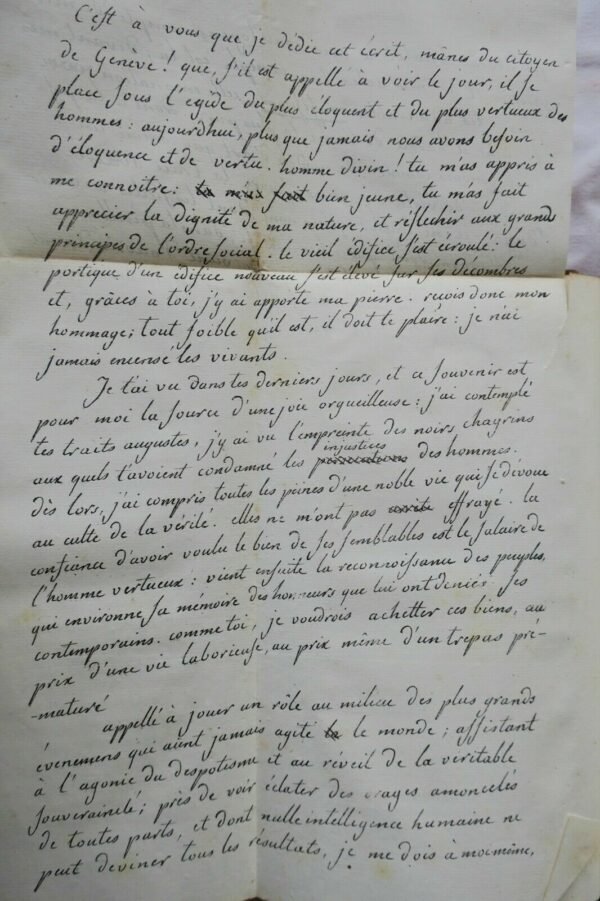 C'est à vous que je dédie cet écrit, mânes du citoyen
de Genève! que, s'il est appellé à voir le jour, il se
place sous l'egide du plus éloquent et du plus vertueux des
hommes: aujourdhui, plus que jamais nous avons besoin
d'éloquence et de vertu. homme divin! tu m'as appris à
me connoître: tu m'as fait bien jeune, tu m'as fait
apprecier la dignité de ma nature, et réflechir aux grands
principes de l'ordre social. le vieil édifice s'est écroulé: le
portique d'un édifice nouveau s'est élevé sur ses décombres
et, grâces à toi, j'y ai apporté ma pierre. reçois donc mon
hommage; tout foible qu'il est, il doit te plaire: je n'ai
jamais encensé les vivants.
Je t'ai vu dans tes derniers jours, et ce souvenir est
pour moi la source d'une joie orgueilleuse: j'ai contemplé
tes traits augustes, j'y ai vu l'empreinte des noirs chagrins
injustices
aux quels t'avoient condamné les persécutions des hommes.
dès lors, j'ai compris toutes les peines d'une noble vie qui se dévoue
au culte de la vérité. elles ne m'ont pas effrayé. la
confiance d'avoir voulu le bien de ses semblables est le salaire de
l'homme vertueux: vient ensuite la reconnoissance des peuples,
qui environne sa mémoire des honneurs que lui ont deniés ses
contemporains. comme toi, je voudrois achetter ces biens, au
prix d'une vie laborieuse, au prix même d'un trepas pré-
-maturé
appellé à jouer un rôle au milieu des plus grands
évenemens qui aient jamais agité le monde; assistant
à l'agonie du despotisme et au réveil de la veritable
souveraineté; près de voir éclater des orages amoncelés
de toutes parts, et dont nulle intelligence humaine ne
peut deviner tous les résultats, je me dois à moi même,